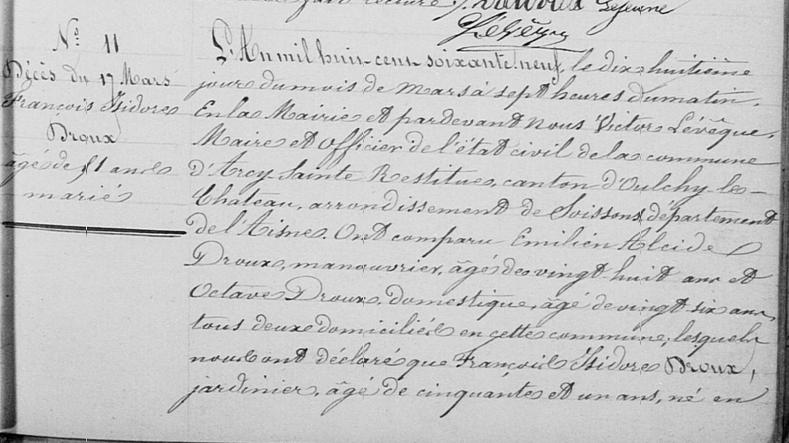 Lejeune
Levêque
N° 11
Décès du 17 Mars
François Isidore
Droux
âgé de 51 ans
marié
L'An mil huit cent soixante neuf, le dix huitième
jour du mois de Mars à sept heures du matin.
En la Mairie et pardevant Nous Victor Lévêque,
Maire et Officier de l'état civil de la commune
d'Arcy Sainte Restitue, canton d'Oulchy le-
Chateau, arrondissement de Soissons, département
de l'Aisne. Ont comparu Emilien Alcide
Droux, manouvrier, âgé de vingt huit ans et
Octave Droux, domestique, âgé de vingt six ans,
tous deux domiciliés en cette commune, lesquels
nous ont déclaré que François Isidore Droux,
jardinier, âgé de cinquante et un ans, né en